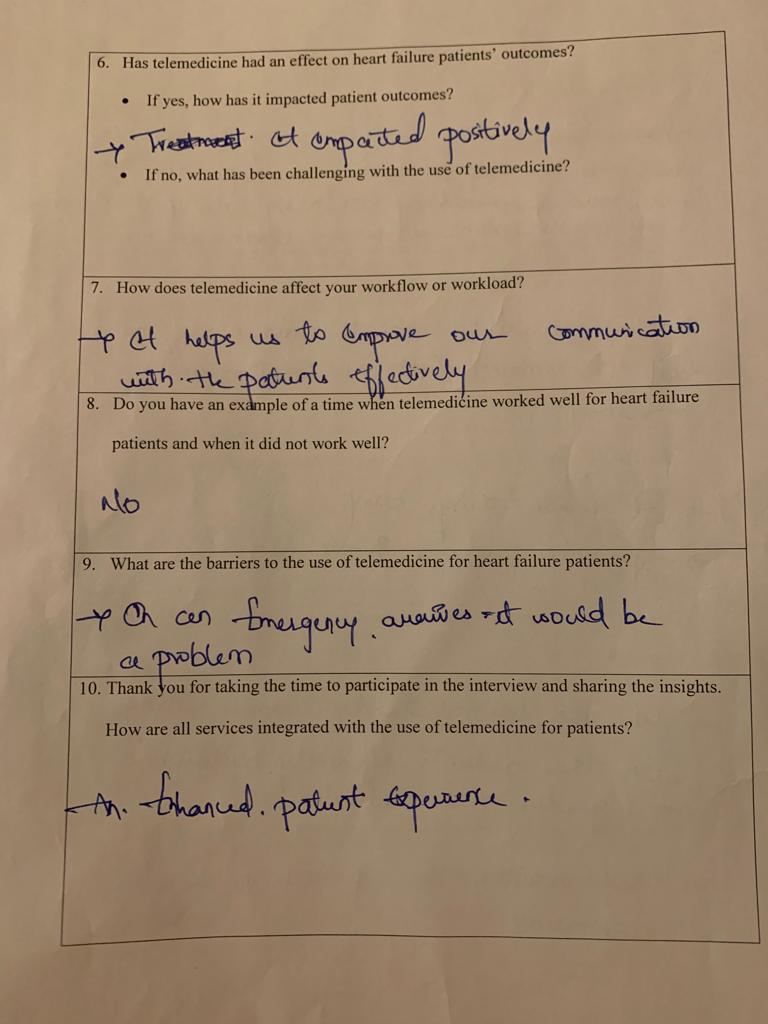 6. Has telemedicine had an effect on heart failure patients' outcomes?
• If yes, how has it impacted patient outcomes?
→ Treatment. It impacted positively
• If no, what has been challenging with the use of telemedicine?
7. How does telemedicine affect your workflow or workload?
→ It helps us to improve our communication
with the patients effectively
8. Do you have an example of a time when telemedicine worked well for heart failure
patients and when it did not work well?
No
9. What are the barriers to the use of telemedicine for heart failure patients?
→ Emergency it would be
a problem
10. Thank you for taking the time to participate in the interview and sharing the insights.
How are all services integrated with the use of telemedicine for patients?
An. Enhanced. patient experience.